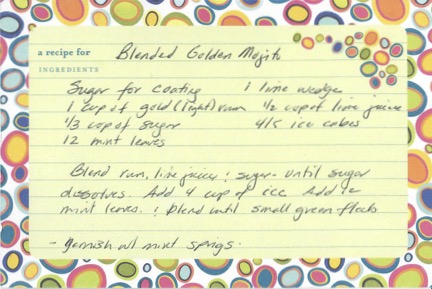 a recipe for Blended Golden Mojito
INGREDIENTS
Sugar for coating 1 lime wedge
1 cup of gold (light) rum 1/2 cup of lime juice
1/3 cup of sugar 4/5 ice cubes
12 mint leaves
Blend rum, lime juice & sugar - until sugar
dissolves. Add 4 cup of ice. Add
mint leaves. & blend until small green flecks
- garnish w/ mint sprigs.